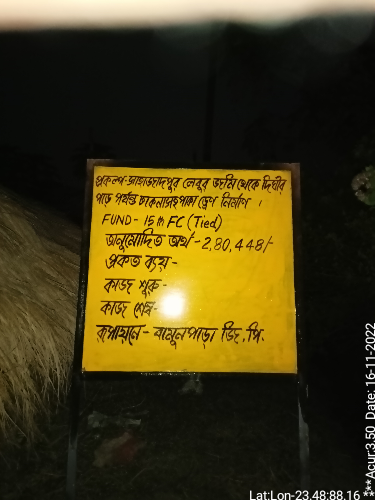 প্রকল্প-সাহাজাদপুর লেবুর জমি থেকে দিঘীর
পাড় পর্যন্ত ঢাকনাসহ পাকা ড্রেণ নির্মাণ ।
FUND - 15 th FC (Tied)
অনুমোদিত অর্থ - 2,80,448/-
প্রকৃত ব্যয় -
কাজ শুরু -
কাজ শেষ -
রূপায়নে - বামুনপাড়া জি. পি.
Lat:Lon-23.48:88.16
***Acur:3.50 Date: 16-11-2022